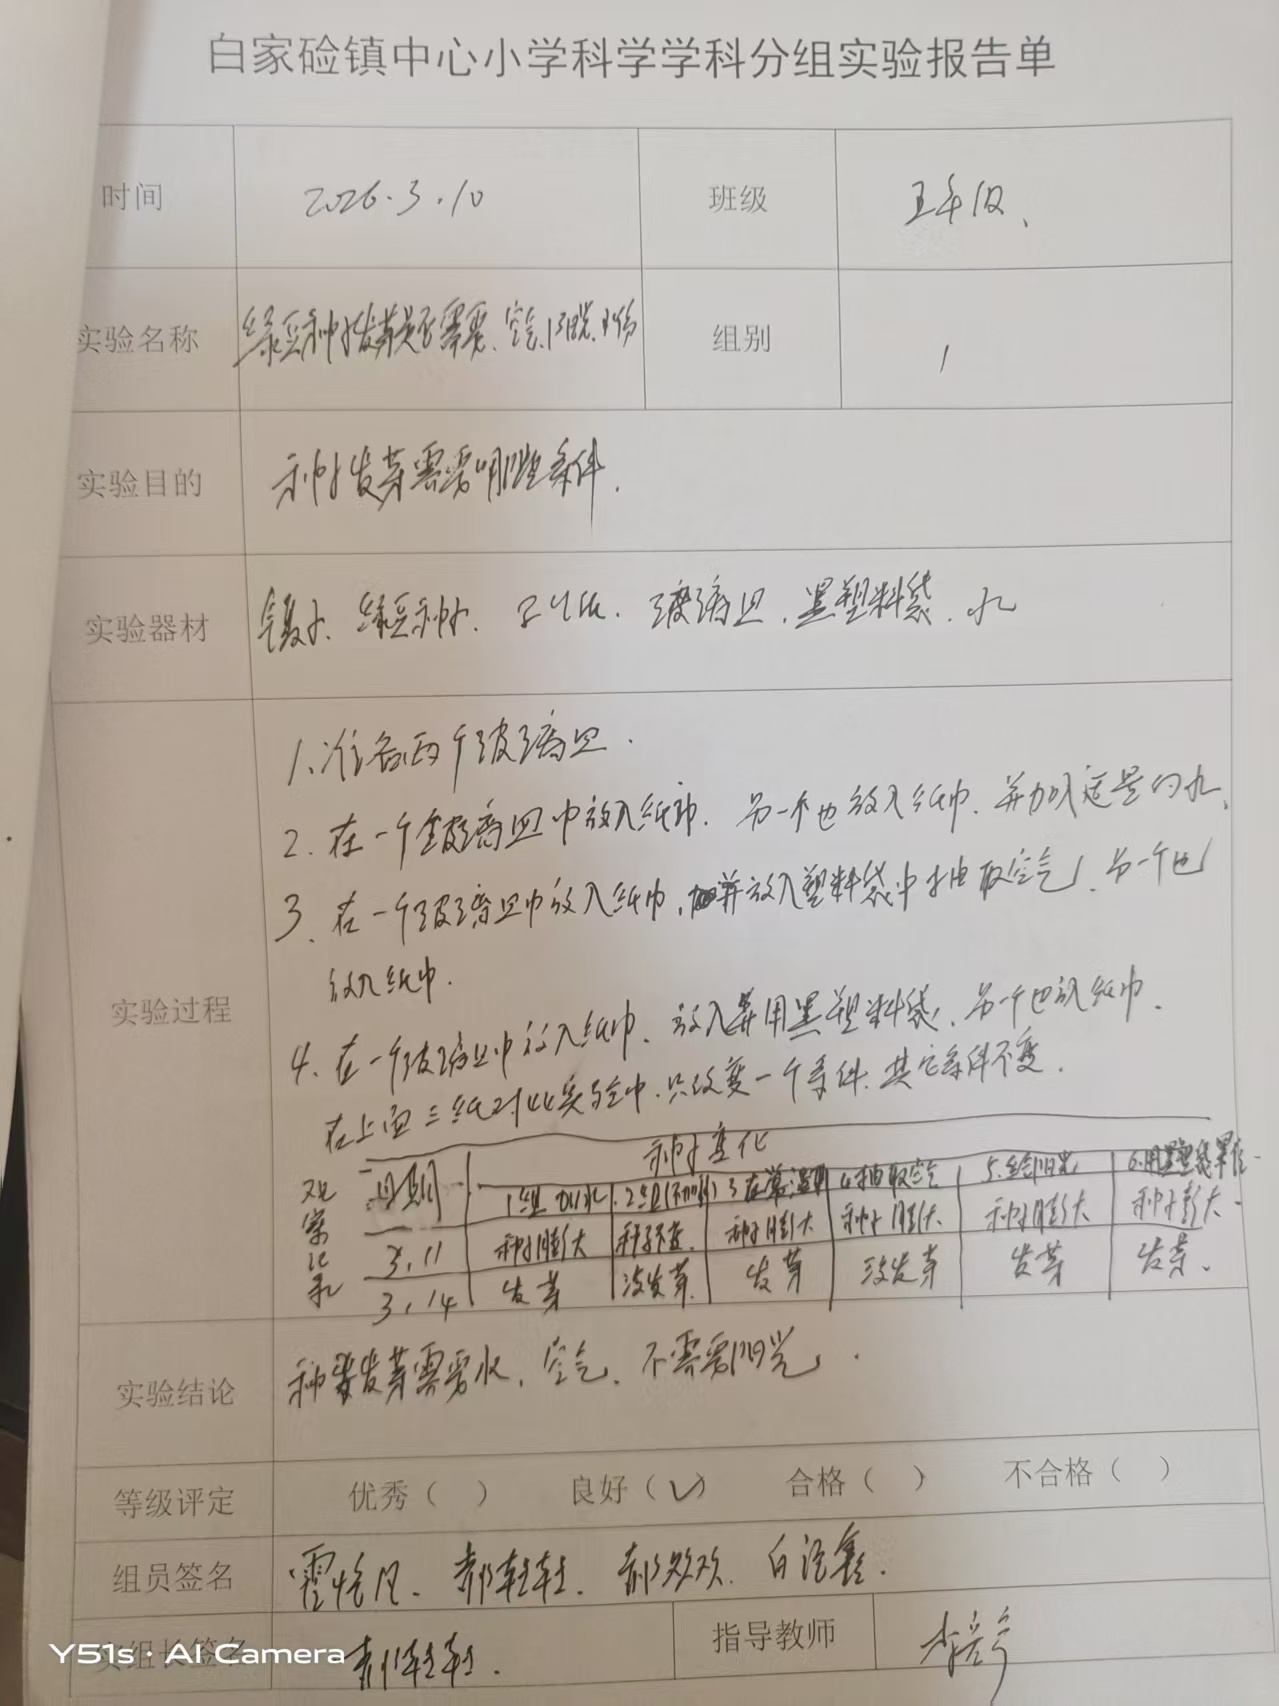 白家硷镇中心小学科学学科分组实验报告单
时间 2026.3.10 班级 五年级、
实验名称 绿豆种子发芽是否需要、空气、阳光、水份 组别 1
实验目的 种子发芽需要哪些条件.
实验器材 镊子、绿豆种子、 玻璃皿、黑塑料袋、水
1、准备两个玻璃皿.
2、在一个玻璃皿中放入纸巾、另一个也放入纸巾、并加入适量的水、
3、在一个玻璃皿中放入纸巾,并放入塑料袋中抽取空气、另一个也
放入纸巾.
实验过程
4、在一个玻璃皿中放入纸巾、放入并用黑塑料袋、另一个也放纸巾、
在上面三组对比实验中、只改变一个条件、其它条件不变.
种子变化
观察记录 日期 1组加水 2组(不加水) 3在常温 4抽取空气 5.给阳光 6.用黑塑袋罩住
3.11 种子膨大 种子不变. 种子膨大 种子膨大. 种子膨大 种子膨大.
3.14 发芽 没发芽. 发芽 没发芽 发芽 发芽.
实验结论 种子发芽需要水、空气、不需要阳光.
等级评定 优秀( ) 良好(✓) 合格( ) 不合格( )
组员签名 郝轻轻、郝欢欢、
实组长签名 郝轻轻. 指导教师
Y51s · AI Camera